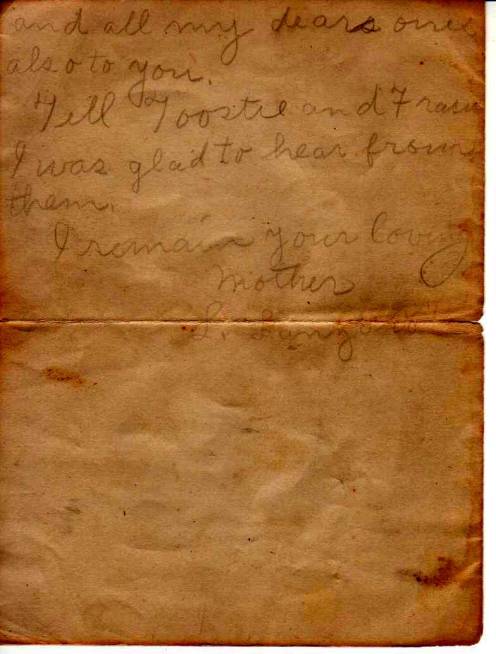 and all my dears ones
also to you.
Tell Tootsie and
I was glad to hear from
them.
I remain your loving
Mother
L.